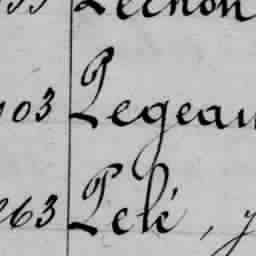 Lechon
03 Legeau
263 Lelé,